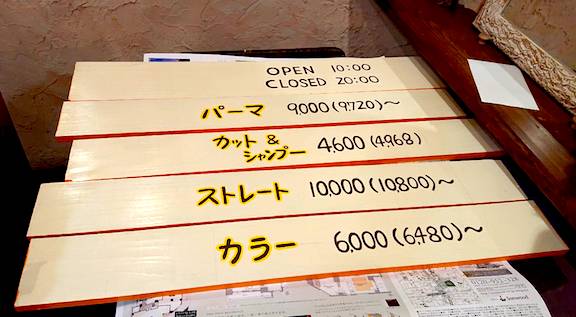 OPEN 10:00
CLOSED 20:00
パーマ 9,000(9,720)～
カット &
シャンプー 4,600(4,968)
ストレート 10,000(10,800)～
カラー 6,000(6,480)～